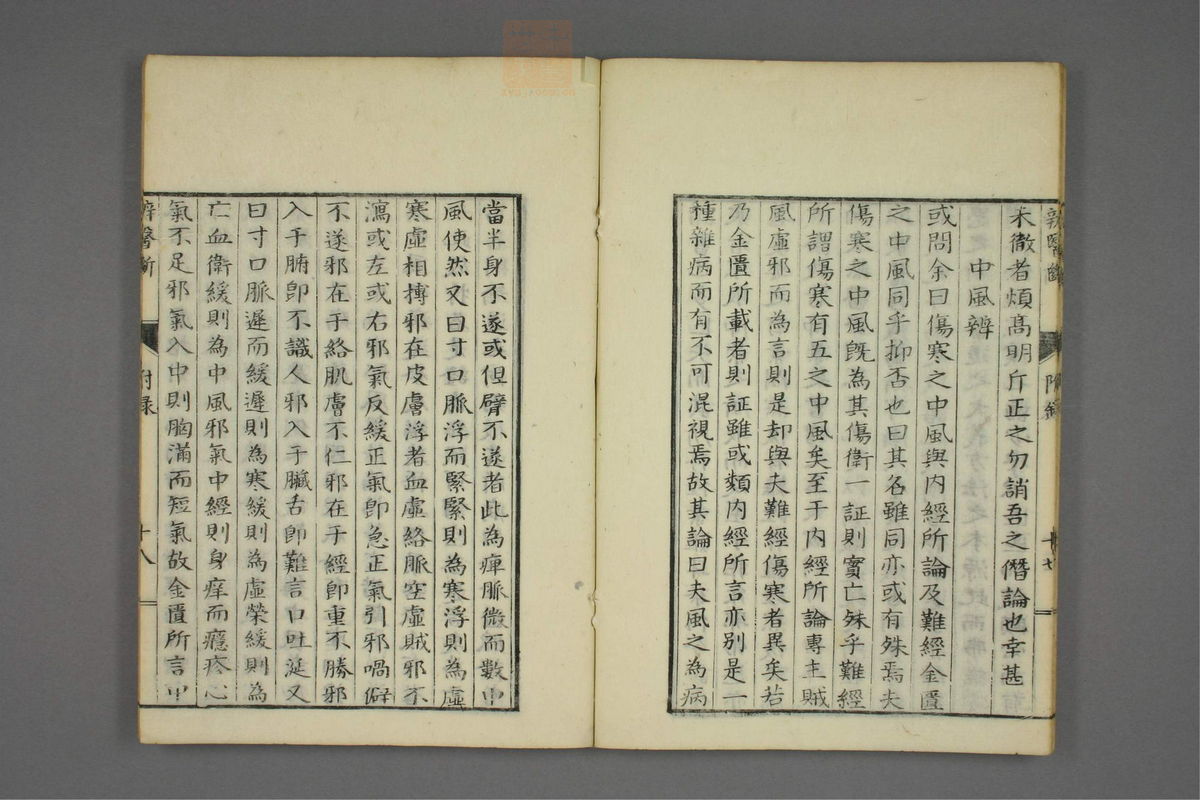 斥醫斷 附錄 十七
未徹者煩高明斤正之勿誚吾之僭論也幸甚
中風辨
或問余曰傷寒之中風與內經所論及難經金匱
之中風同乎抑否也曰其名雖同亦或有殊焉夫
傷寒之中風旣為其傷衛一証則實亡殊乎難經
所謂傷寒有五之中風矣至于內經所論專主賊
風虛邪而為言則是却與夫難經傷寒者異矣若
乃金匱所載者則証雖或類內經所言亦別是一
種雜病而有不可混視焉故其論曰夫風之為病
當半身不遂或但臂不遂者此為痺脈微而數中
風使然又曰寸口脈浮而緊緊則為寒浮則為虛
寒虛相摶邪在皮膚浮者血虛絡脈空虛賊邪不
瀉或左或右邪氣反緩正氣卽急正氣引邪喎僻
不遂邪在于絡肌膚不仁邪在于經卽重不勝邪
入于腑卽不識人邪入于臟舌卽難言口吐涎又
曰寸口脈遲而緩遲則為寒緩則為虛榮緩則為
亡血衛緩則為中風邪氣中經則身痒而癮疹心
氣不足邪氣入中則胸滿而短氣故金匱所言中
醫斷 附錄 十八